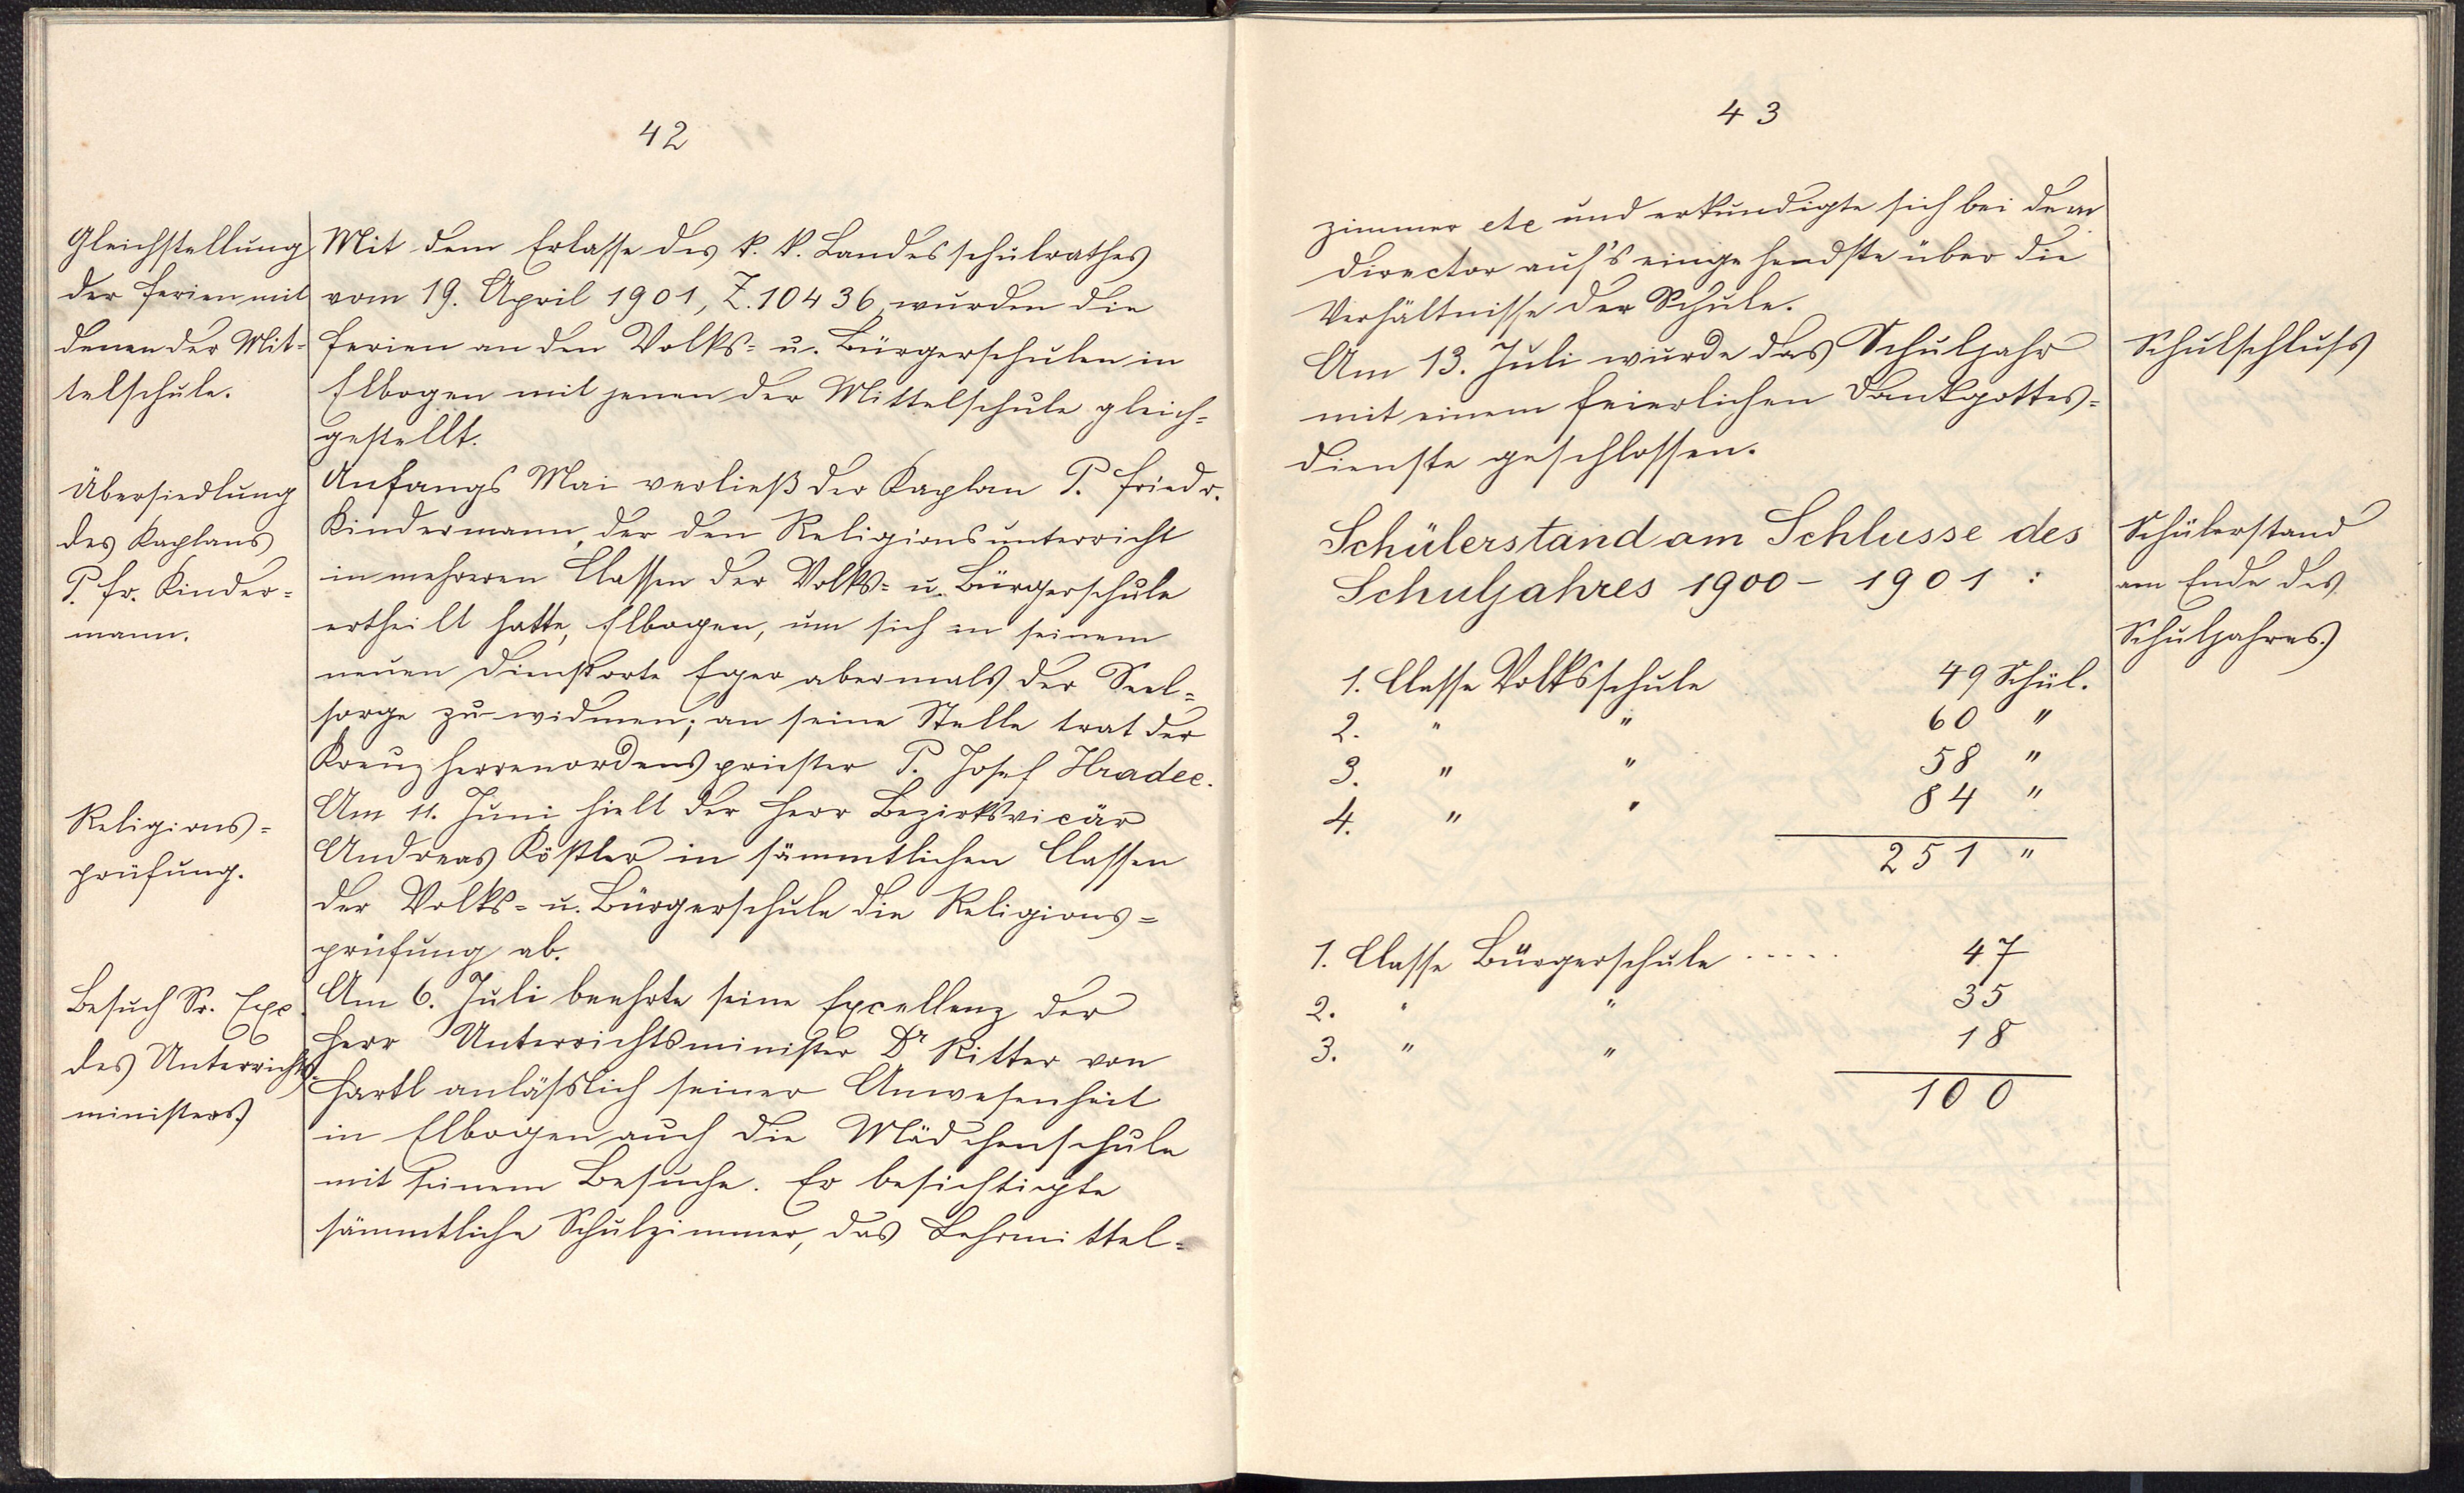 42
Gleichstellung
der Ferien mit
denen der Mit-
telschule.
Mit dem Erlasse des k. k. Landesschulrathes
vom 19. April 1901, Z. 10436, wurden die
Ferien an den Volks- u. Bürgerschulen in
Elbogen mit jenen der Mittelschule gleich-
gestellt.
Übersiedlung
des Kaplans
P. Fr. Kinder-
mann.
Anfangs Mai verließ der Kaplan P. Friedr.
Kindermann, der den Religionsunterricht
in mehreren Classen der Volks- u. Bürgerschule
ertheilt hatte, Elbogen, um sich in seinem
neuen Dienstorte Eger abermals der Seel-
sorge zu widmen; an seine Stelle trat der
Kreuzherrenordenspriester P. Josef Hradec.
Religions-
prüfung.
Am 11. Juni hielt der Herr Bezirksvicär
Andreas Köstler in sämmtlichen Classen
der Volks- u. Bürgerschule die Religions-
prüfung ab.
Besuch Sr. Exc.
des Unterrichts-
ministers.
Am 6. Juli beehrte seine Excellenz der
Herr Unterrichtsminister Dr Ritter von
Hartl anläßlich seiner Anwesenheit
in Elbogen auch die Mädchenschule
mit seinem Besuche. Er besichtigte
sämmtliche Schulzimmer, das Lehrmittel-
43
zimmer etc und erkundigte sich bei dem
Director auf's eingehendste über die
Verhältnisse der Schule.
Am 13. Juli wurde das Schuljahr
mit einem feierlichen Dankgottes-
dienste geschlossen.
Schulschluß
Schülerstand am Schlusse des
Schuljahres 1900 - 1901 :
Schülerstand
am Ende des
Schuljahres.
1. Classe Volksschule 49 Schül.
2. " " 60 "
3. " " 58 "
4. " " 84 "
251 "
1. Classe Bürgerschule ..... 47
2. " " 35
3. " " 18
100